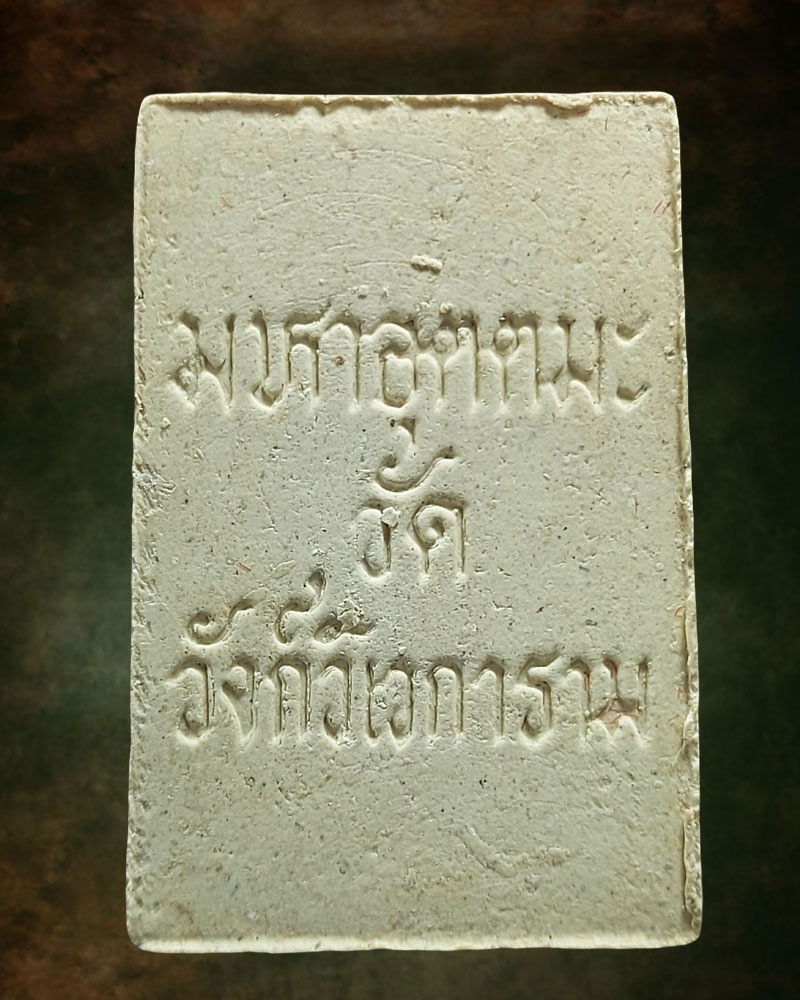 มหาอุตตมะ
วัด
วังก์วิเวการาม